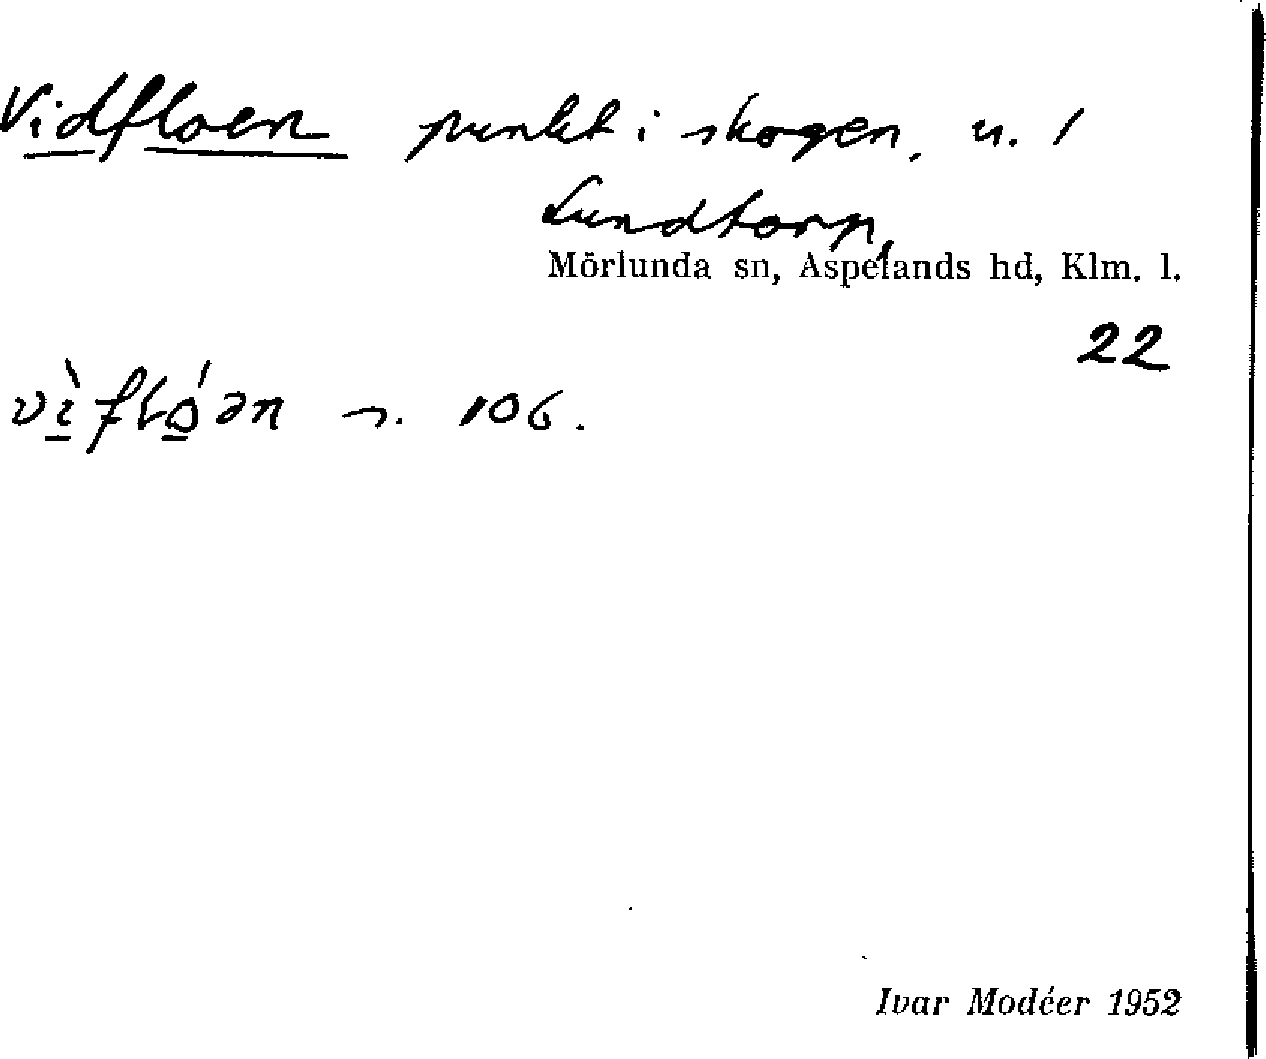 Vidfloen punkt i skogen. u. 1
Lundtorp,
Mörlunda sn, Aspelands hd, Klm. l.
22
vı̱̀fló̱ən s. 106.
Ivar Modéer 1952